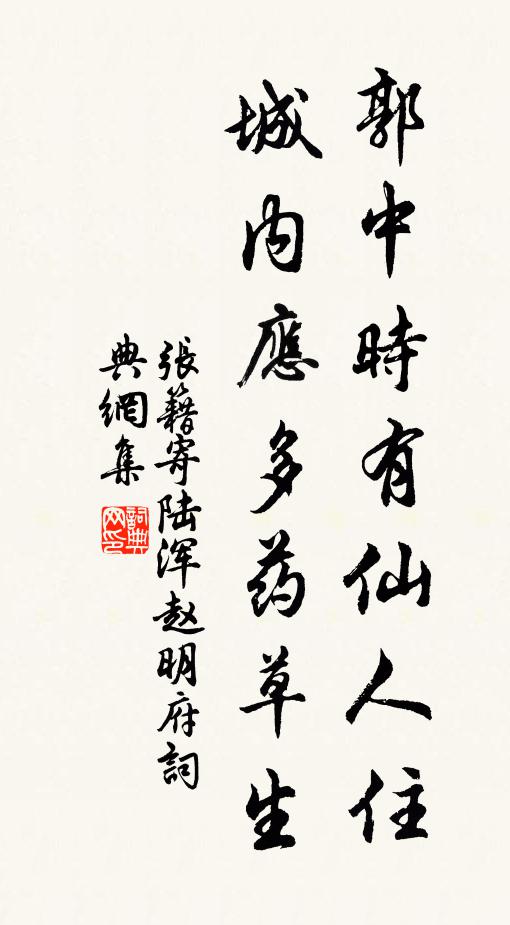 郭中時有仙人住
城内應多药草生
張籍寄陆浑赵明府詞
典網集
詞典网印